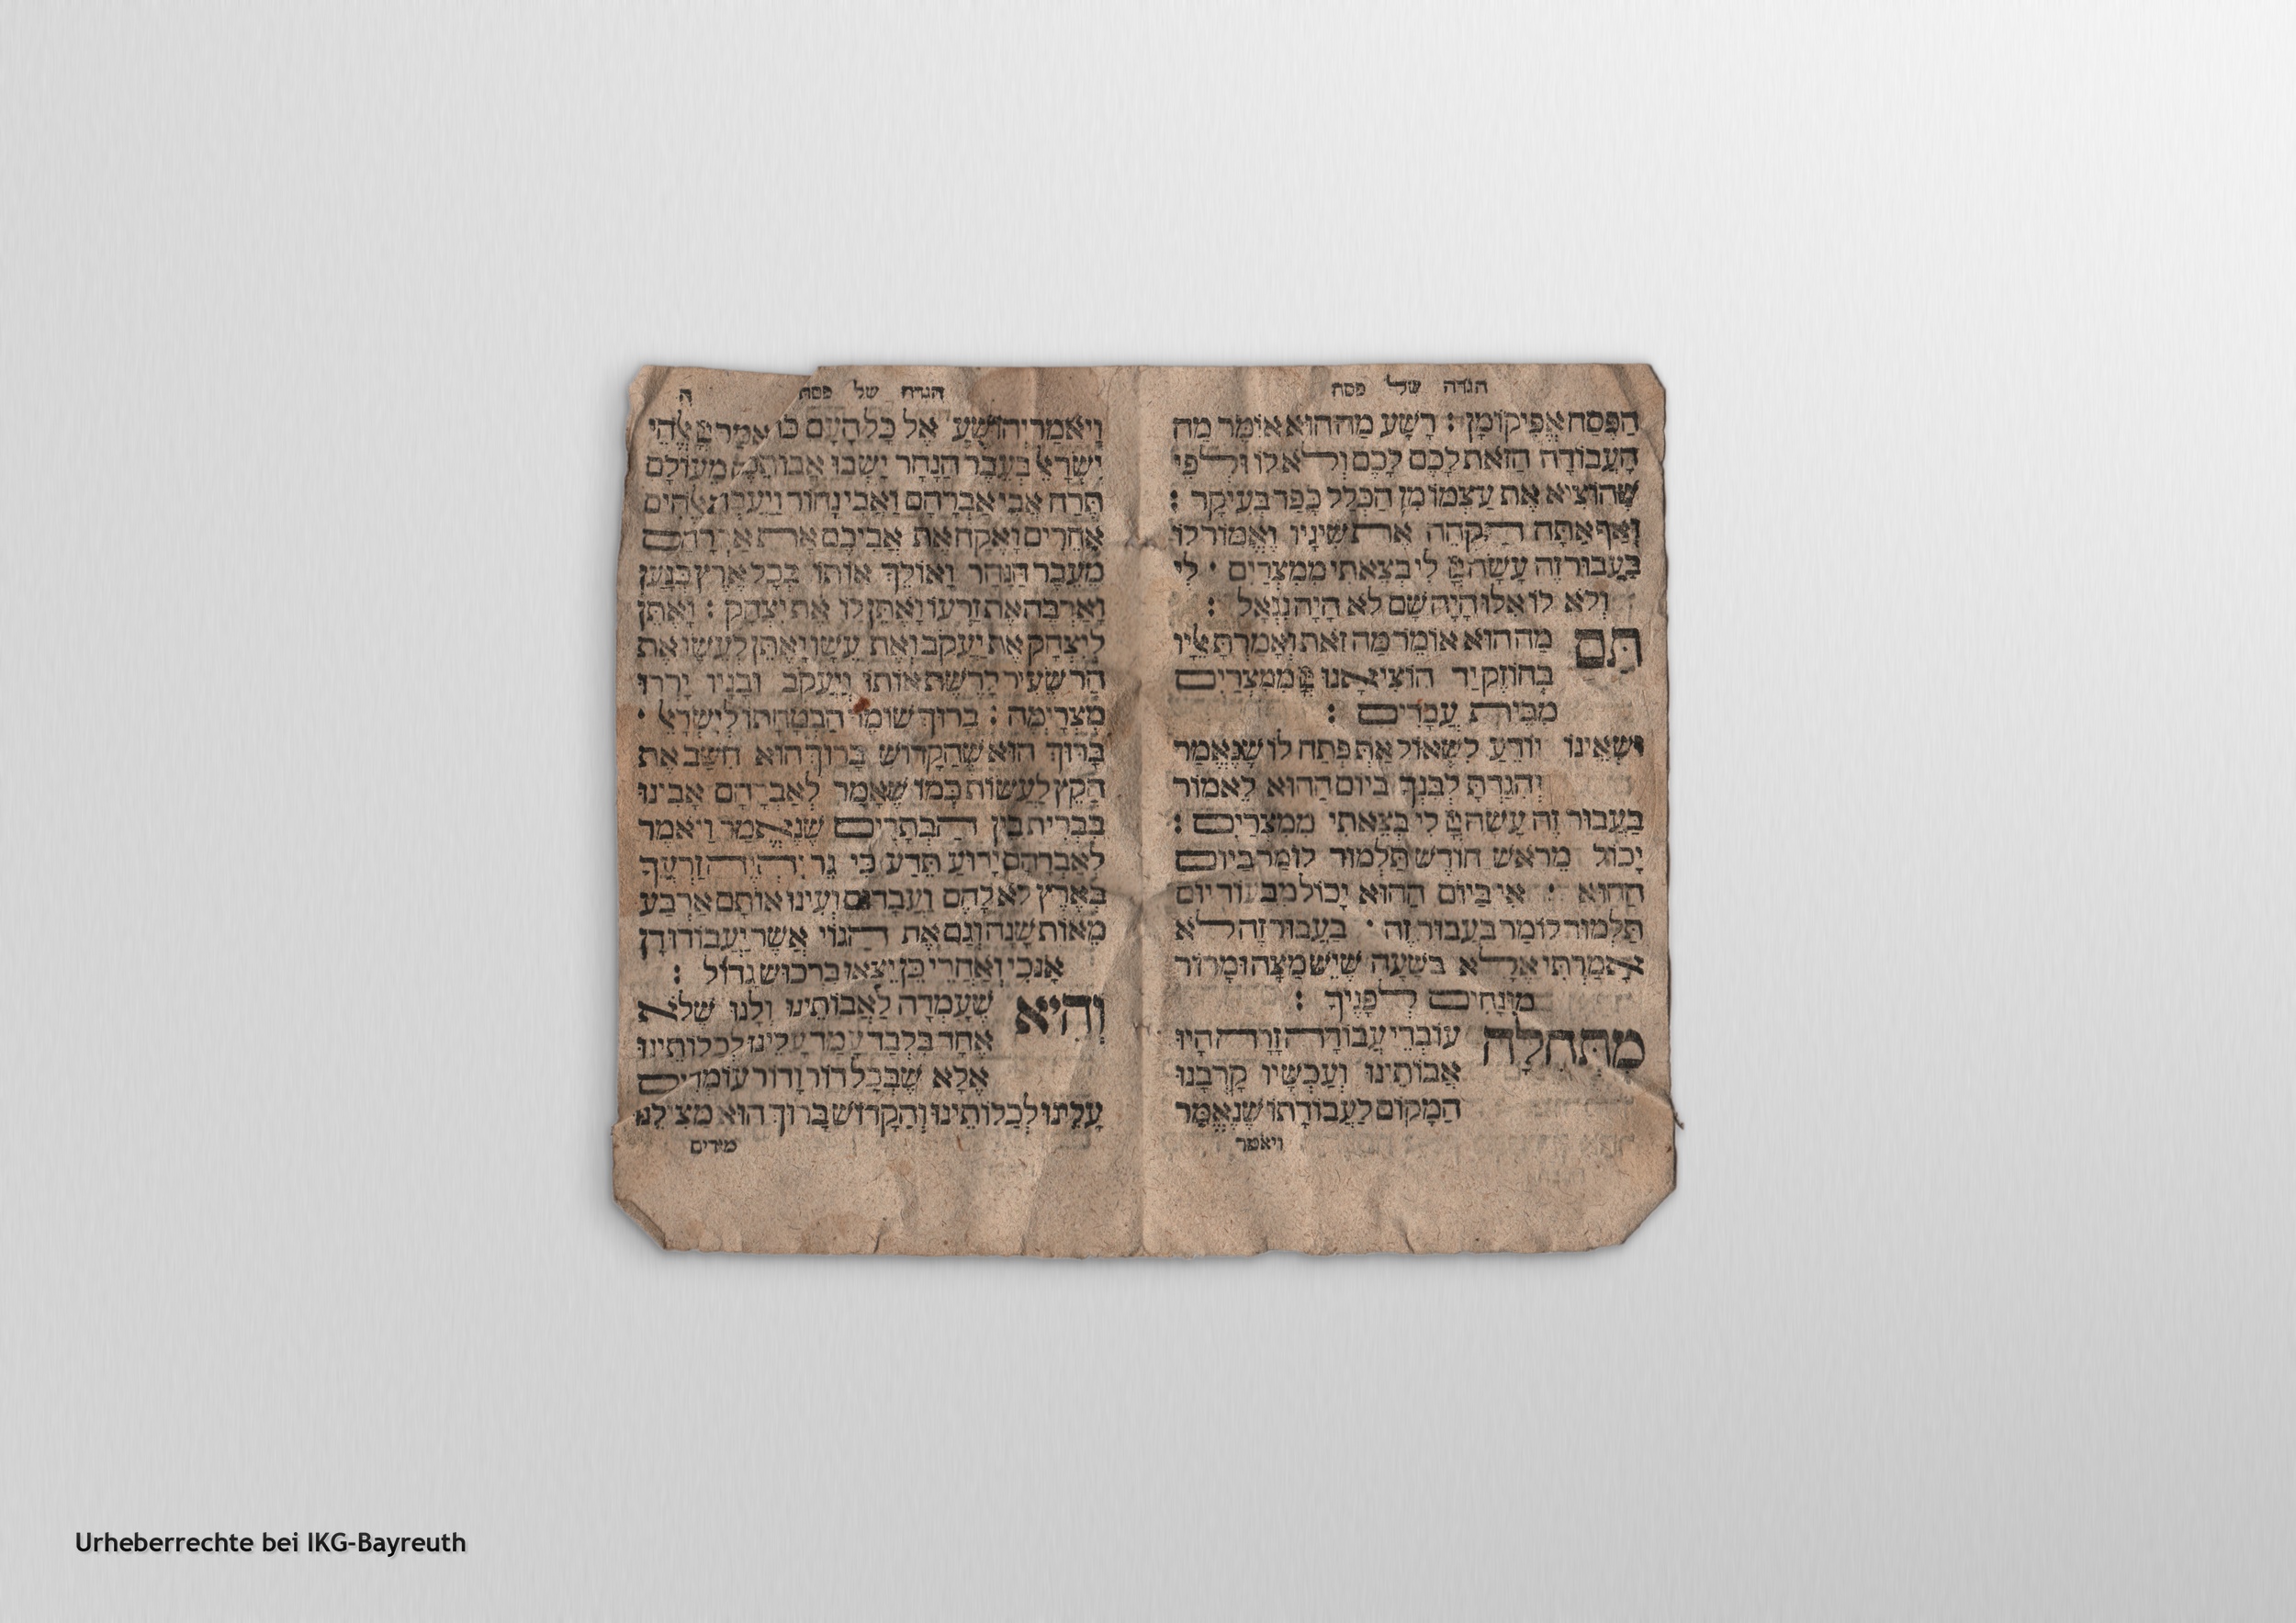 הגדה של פסח
הַפֶּסַח אֲפִיקוֹמָן : רָשָׁע מַה הוּא אוֹמֵר מַה
הָעֲבוֹדָה הַזֹּאת לָכֶם לָכֶם וְלֹא לוֹ וּלְפִי
שֶׁהוֹצִיא אֶת עַצְמוֹ מִן הַכְּלָל כָּפַר בְּעִיקָר :
וְאַף אַתָּה הַקְהֵה אֶת שִׁינָיו וֶאֱמוֹר לוֹ
בַּעֲבוּר זֶה עָשָׂה יְיָ לִי בְּצֵאתִי מִמִּצְרַיִם · לִי
וְלֹא לוֹ אִלּוּ הָיָה שָׁם לֹא הָיָה נִגְאָל :
תָּם מַה הוּא אוֹמֵר מַה זֹּאת וְאָמַרְתָּ אֵלָיו
בְּחוֹזֶק יָד הוֹצִיאָנוּ יְיָ מִמִּצְרַיִם
מִבֵּית עֲבָדִים :
וְשֶׁאֵינוֹ יוֹדֵעַ לִשְׁאוֹל אַתְּ פְּתַח לוֹ שֶׁנֶּאֱמַר
וְהִגַּדְתָּ לְבִנְךָ בַּיּוֹם הַהוּא לֵאמוֹר
בַּעֲבוּר זֶה עָשָׂה יְיָ לִי בְּצֵאתִי מִמִּצְרַיִם :
יָכוֹל מֵרֹאשׁ חוֹדֶשׁ תַּלְמוּד לוֹמַר בַּיּוֹם
הַהוּא : אִי בַּיּוֹם הַהוּא יָכוֹל מִבְּעוֹד יוֹם
תַּלְמוּד לוֹמַר בַּעֲבוּר זֶה · בַּעֲבוּר זֶה לֹא
אָמַרְתִּי אֶלָּא בְּשָׁעָה שֶׁיֵּשׁ מַצָּה וּמָרוֹר
מוּנָּחִים לְפָנֶיךָ :
מִתְּחִלָּה עוֹבְדֵי עֲבוֹדָה זָרָה הָיוּ
אֲבוֹתֵינוּ וְעַכְשָׁיו קֵרְבָנוּ
הַמָּקוֹם לַעֲבוֹדָתוֹ שֶׁנֶּאֱמַר
ויאמר
הגדה של פסח ה
וַיֹּאמֶר יְהוֹשֻׁעַ אֶל כָּל הָעָם כֹּה אָמַר יְיָ אֱלֹהֵי
יִשְׂרָאֵל בְּעֵבֶר הַנָּהָר יָשְׁבוּ אֲבוֹתֵיכֶם מֵעוֹלָם
תֶּרַח אֲבִי אַבְרָהָם וַאֲבִי נָחוֹר וַיַּעַבְדוּ אֱלֹהִים
אֲחֵרִים וָאֶקַּח אֶת אֲבִיכֶם אֶת אַבְרָהָם
מֵעֵבֶר הַנָּהָר וָאוֹלֵךְ אוֹתוֹ בְּכָל אֶרֶץ כְּנָעַן
וָאַרְבֶּה אֶת זַרְעוֹ וָאֶתֵּן לוֹ אֶת יִצְחָק : וָאֶתֵּן
לְיִצְחָק אֶת יַעֲקֹב וְאֶת עֵשָׂו וָאֶתֵּן לְעֵשָׂו אֶת
הַר שֵׂעִיר לָרֶשֶׁת אוֹתוֹ וְיַעֲקֹב וּבָנָיו יָרְדוּ
מִצְרָיְמָה : בָּרוּךְ שׁוֹמֵר הַבְטָחָתוֹ לְיִשְׂרָאֵל ·
בָּרוּךְ הוּא שֶׁהַקָּדוֹשׁ בָּרוּךְ הוּא חִשַּׁב אֶת
הַקֵּץ לַעֲשׂוֹת כְּמוֹ שֶׁאָמַר לְאַבְרָהָם אָבִינוּ
בִּבְרִית בֵּין הַבְּתָרִים שֶׁנֶּאֱמַר וַיֹּאמֶר
לְאַבְרָהָם יָדוֹעַ תֵּדַע כִּי גֵר יִהְיֶה זַרְעֲךָ
בְּאֶרֶץ לֹא לָהֶם וַעֲבָדוּם וְעִינּוּ אוֹתָם אַרְבַּע
מֵאוֹת שָׁנָה וְגַם אֶת הַגּוֹי אֲשֶׁר יַעֲבוֹדוּ דָּן
אָנֹכִי וְאַחֲרֵי כֵן יֵצְאוּ בִּרְכוּשׁ גָּדוֹל :
וְהִיא שֶׁעָמְדָה לַאֲבוֹתֵינוּ וְלָנוּ שֶׁלֹּא
אֶחָד בִּלְבַד עָמַד עָלֵינוּ לְכַלּוֹתֵינוּ
אֶלָּא שֶׁבְּכָל דּוֹר וָדוֹר עוֹמְדִים
עָלֵינוּ לְכַלּוֹתֵינוּ וְהַקָּדוֹשׁ בָּרוּךְ הוּא מַצִּילֵנוּ
מידים
Urheberrechte bei IKG-Bayreuth